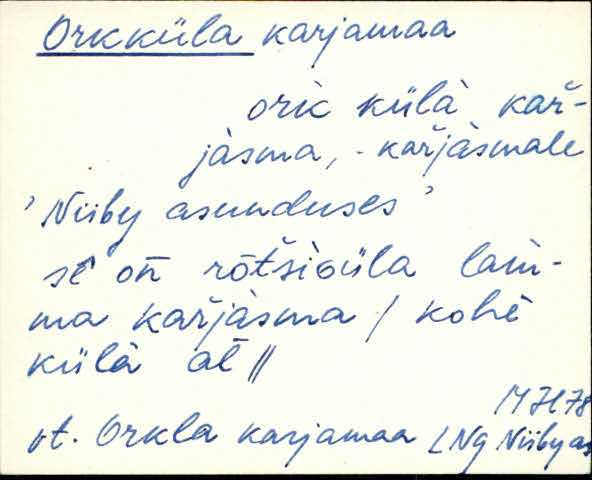 Orkküla karjamaa
orìk külà kař-
jàsma, - kařjàsmale
'Niiby asunduses'
sè on rōtšiküla lam-
ma kařjàsma / kohè
külà al ||
MH78
vt. Orkla karjamaa LNg Niiby as